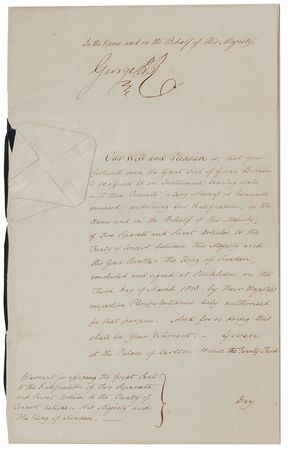 In the Name and on the Behalf of His Majesty,
George P R
Our Will and Pleasure is, that you
forthwith cause the Great Seal of Great Britain
to be affixed to an Instrument bearing date
with these Presents, a Copy whereof is hereunto
annexed, containing Our Ratification, in the
Name and on the Behalf of His Majesty,
of Two Separate and Secret Articles to the
Treaty of Concert between His Majesty and
His Good Brother The King of Sweden,
concluded and signed at Stockholm on the
Third Day of March 1813, by Their Majesties'
respective Plenipotentiaries duly authorized
for that purpose. And for so doing this
shall be Your Warrant. Given
at the Palace of Carlton House the Twenty Third
Day
Warrant for affixing the Great Seal
to the Ratification of Two Separate
and Secret Articles to the Treaty of
Concert between His Majesty and
The King of Sweden.